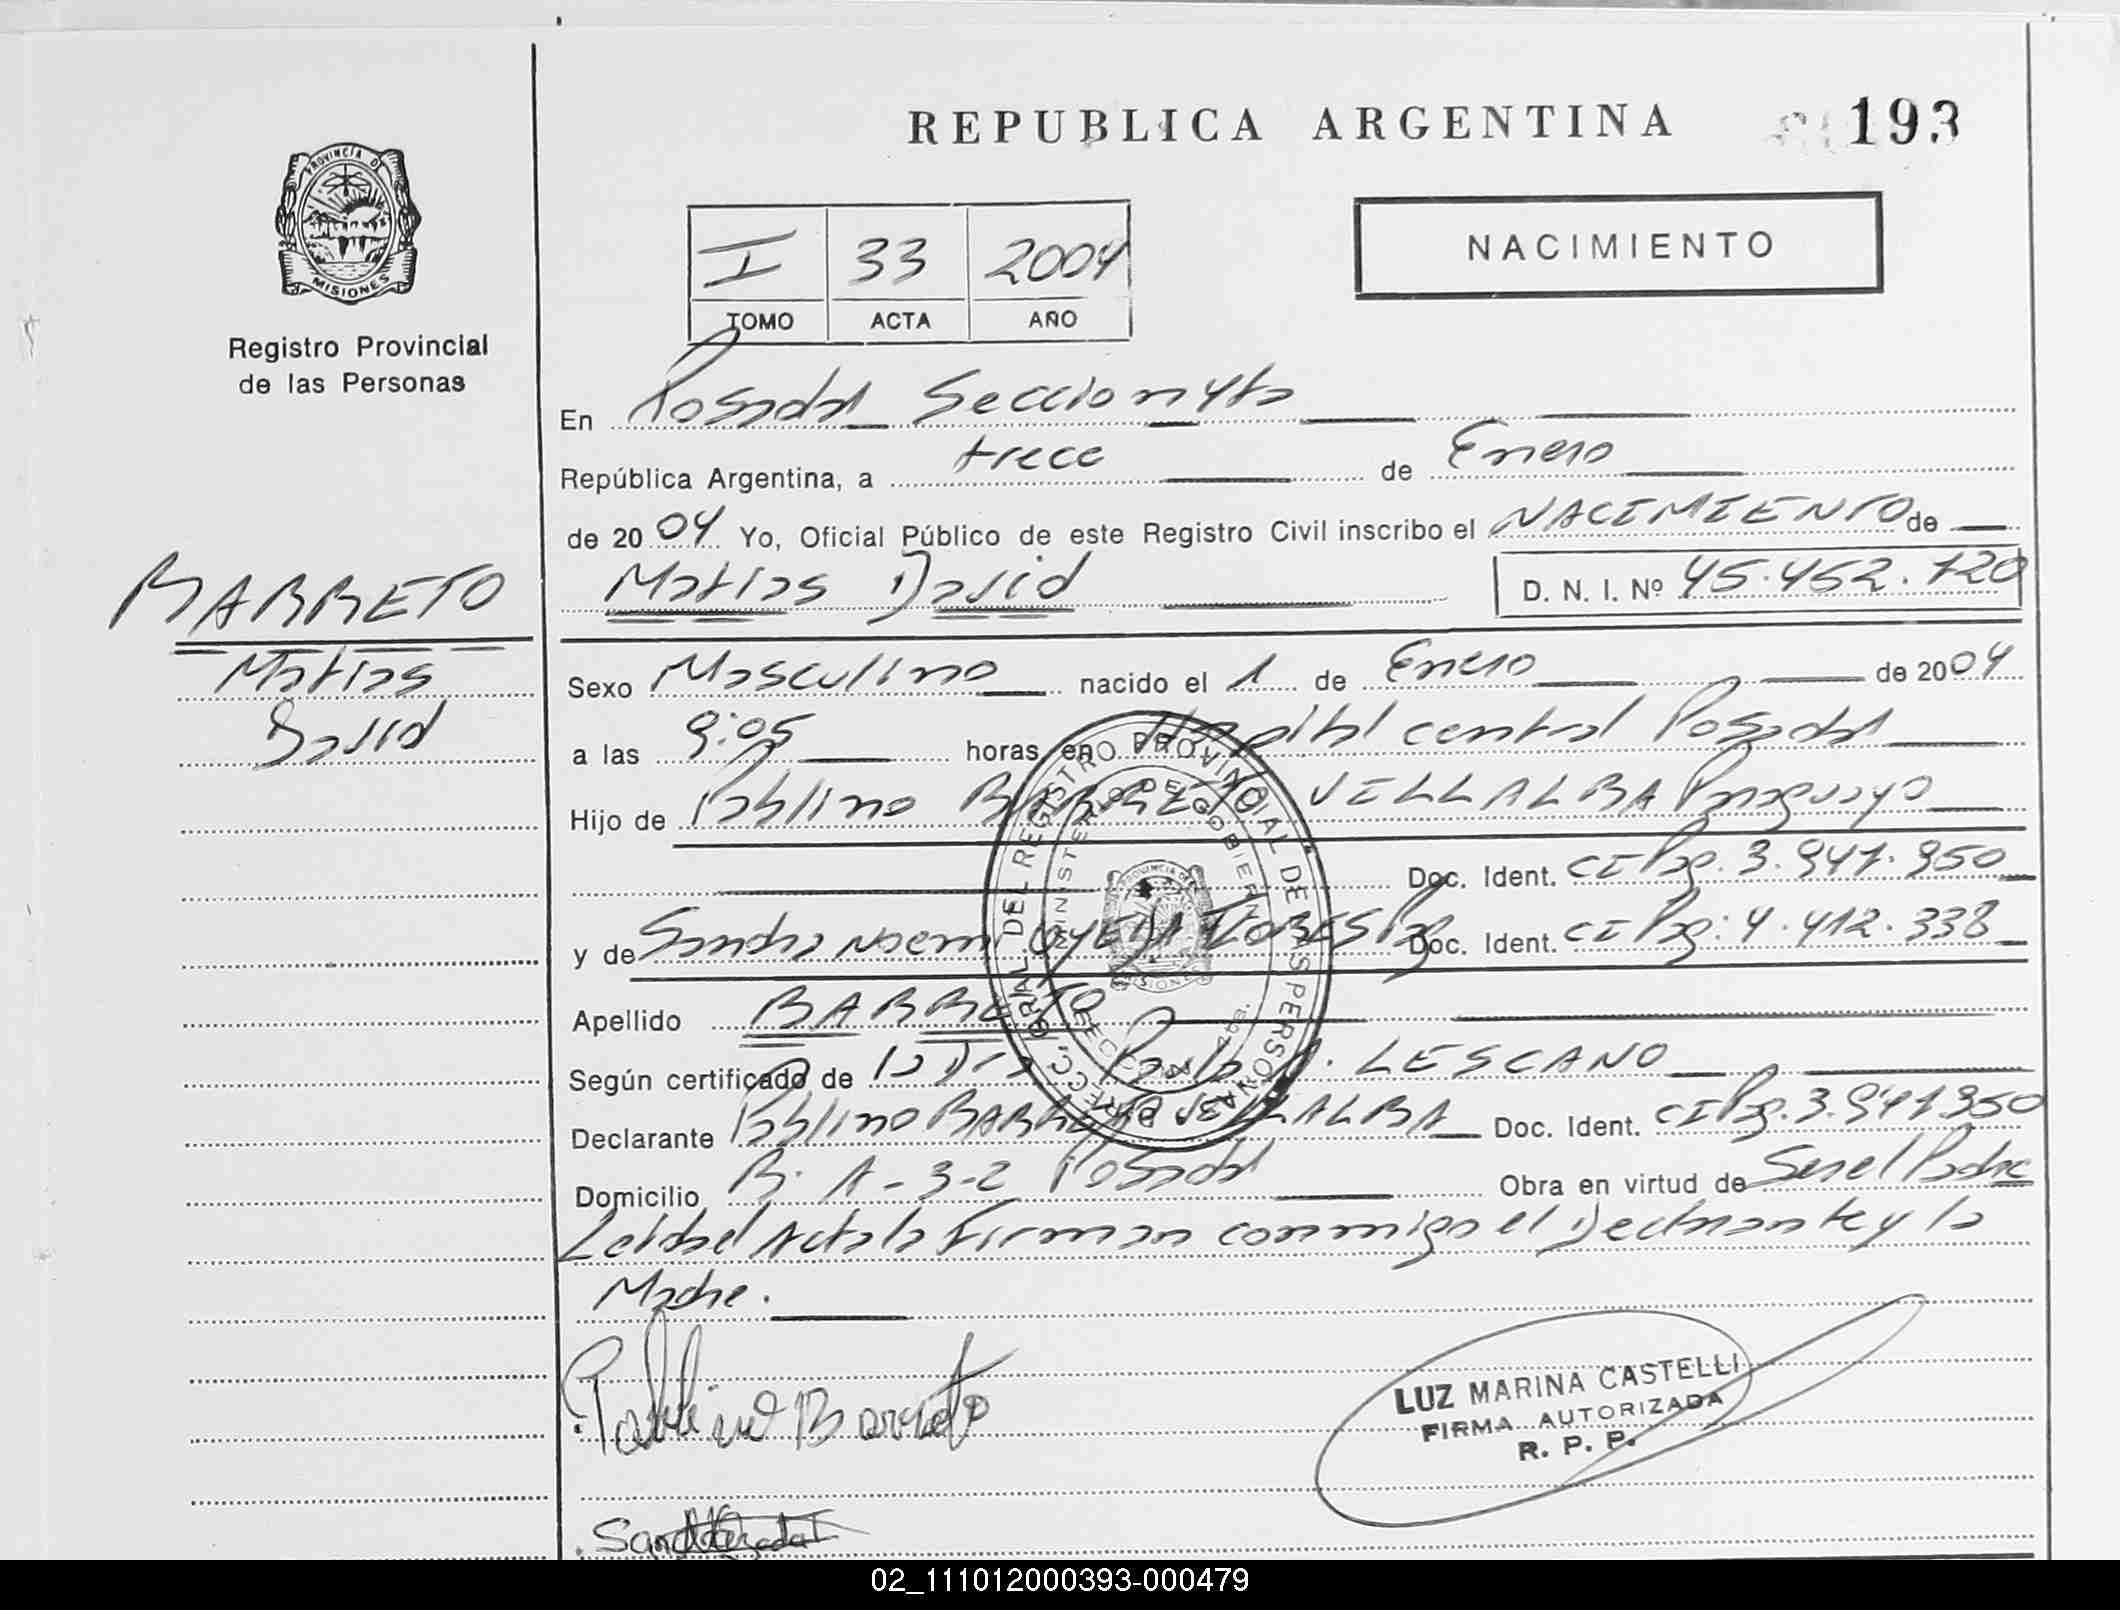 REPUBLICA ARGENTINA
193
PROVINCIA DE
MISIONES
Registro Provincial
de las Personas
I 33 2004
TOMO ACTA AÑO
NACIMIENTO
En Posadas Seccion 4ta
República Argentina, a trece de Enero
de 2004 Yo, Oficial Público de este Registro Civil inscribo el NACIMIENTO de
Matias David D. N. I. Nº 45.452.720
BARRETO
Matias
David
Sexo Masculino nacido el 1 de Enero de 2004
a las 9:05 horas en Hospital central Posadas
Hijo de Poblino BARRETO VILLALBA Paraguayo
Doc. Ident. CI Pag. 3.941.950
y de Sandra Noemi TORES Pag Doc. Ident. CI Pag: 4.412.338
Apellido BARRETO
Según certificado de la Dra Paola A. LESCANO
Declarante Poblino BARRETO VILLALBA Doc. Ident. CI Pag. 3.941.950
Domicilio B. A-3-2 Posadas Obra en virtud de Ser el Padre
Leida el Acta la Firman conmigo el Declarante y la
Madre.
DIRECC. GRAL. DEL REGISTRO PROVINCIAL DE LAS PERSONAS
MINISTERIO DE GOBIERNO
PROVINCIA DE
MISIONES
Poblino Barreto
LUZ MARINA CASTELLI
FIRMA AUTORIZADA
R. P. P.
02_111012000393-000479